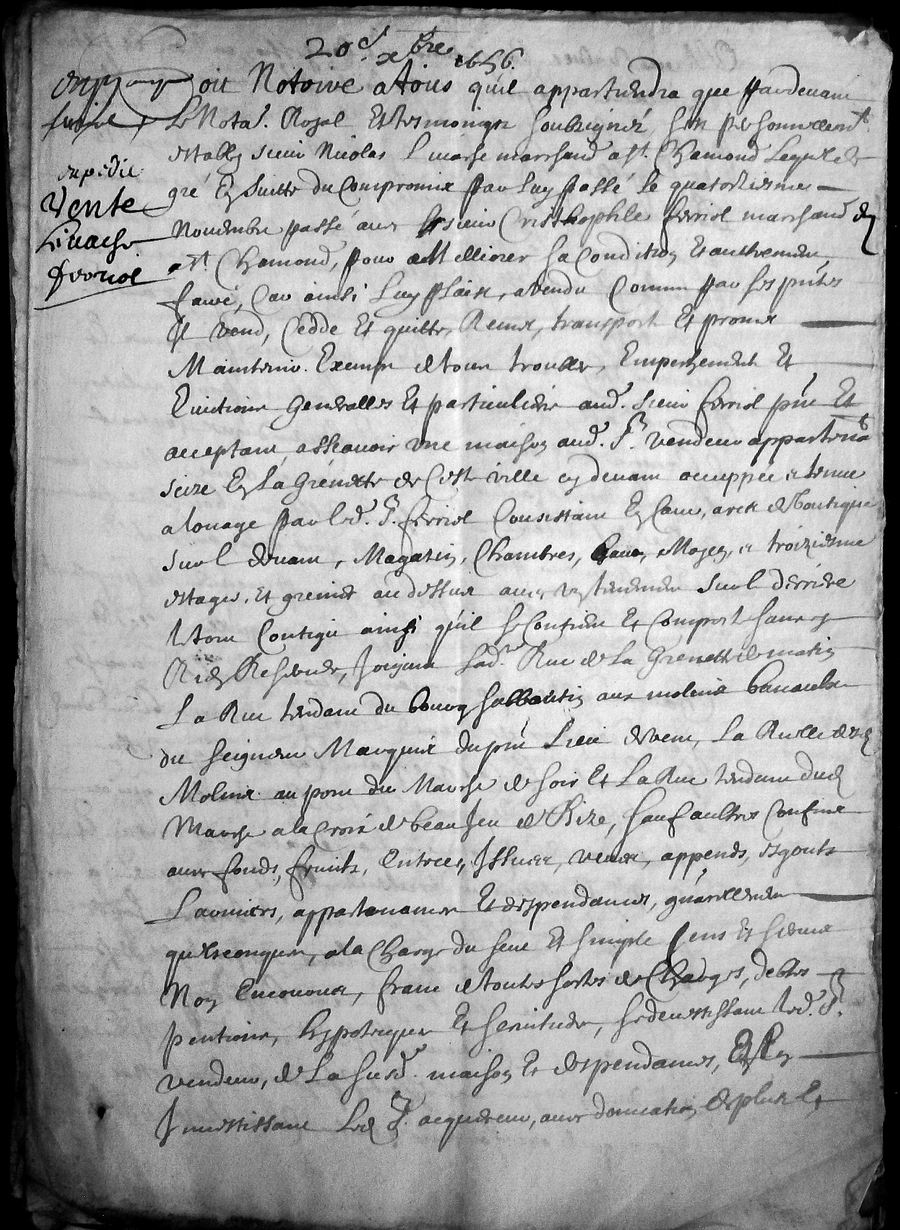 20e xbre 1656
Soit Notoire a tous quil appartiendra que pardevant
Le Nota.e Royal Et tesmoingz soubzsignéz, sest personnellemt.
estably sieur Nicolas marchand a st. Chamond Lequel de
expedié
gré Et suitte du Compromix par Luy passé le quatorziesme
Vente
Novembre passé avec sieur Cristhophle ferriol marchand
ferriol
a st. Chamond, pour meilliorer sa Condition Et autrement
faire, Car ainsi Luy plaist, a vendu Comme par ses pntes
Il vend, Cedde Et quitte, Remet, transport Et promet
Maintenir Exempt de tous trouble, Empeschement Et
Evictions Generalles Et particulieres aud. sieur ferriol pnt Et
acceptant assavoir une maison aud. Sr. vendeur appartena
scize En La Grenette de Cest ville cy devant occuppée & tenue
a louage par led. Sr. ferriol Consistant En Cave, arct de boutique
sur l devant, Magazin, Chambres, moyen, & troiziesme
estages, Et grenier au dessus avec tenement sur l derrière
Contigu ainsi quil se Confine Et Comport sans y
Rien Reserver, Joignant Lad. Rue de La Grenette de matin
La Rue tendant du bourg aux molins banaulx
du seigneur Marquis du pnt Lieu de vent, La Ruelle des
Molins au pont du Marche de soir Et La Rue tendant dud
Marche a la Croix de beau Jeu de Bize, sauf aultres Confins
avec fonds, fruits, Entrees, Issues, veues, appends, esgouts
Larmiers, appartenances Et despendances, généllement
quelconques, a la Charge du seul Et simple Cens Et servis
Non Encouru, franc de toutes sortes de Charges, debtes
pentions, hyppoteques Et servitude, se devestissant led. Sr.
vendeur, de La susd. maison Et despendances, Et En
Investissant Led Sr. acquereur, avec donnation de plus Et